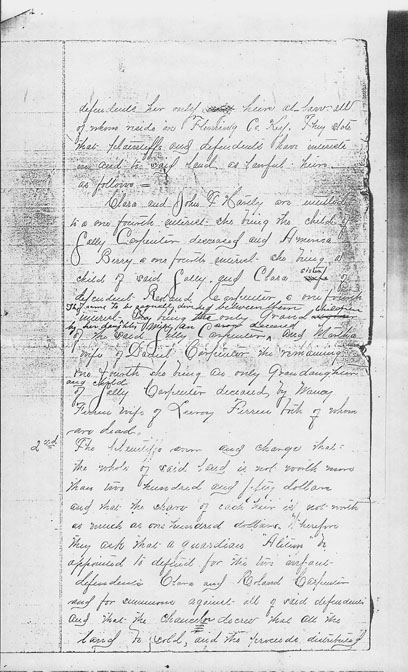 defendents her only heirs at law - all
of whom reside in Fleming Co. Key. They state
that plaintiffs and defendents have interests
in and to said land as lawful heirs
as follows =
Clara and John F Hardy are entitled
to a one fourth interest she being the child of
Sally Carpenter deceased and America
Berry a one fourth interest she being a
child of said Sally, and Clara sister of
defendent Roland Carpenter a one fourth
interest to be equally divided between them
they being the only Grand children
by her daughter Carpenter deceased
of the said Sally Carpenter, and Martha
wife of Daniel Carpenter the remaining
one fourth she being an only Grandaughter
and child
of Sally Carpenter deceased, by Nancy
Perrin wife of Leeroy Perrin both of whom
are dead.
2nd The plaintiffs aver and charge that
the whole of said land is not worth more
than two hundred and fifty dollars
and that the share of each heir is not worth
as much as one hundred dollars. Wherefore
they ask that a guardian "Alitem" be
appointed to defend for the two infant
defendents Clara and Roland Carpenter
and for summons against all of said defendents
and that the Chancelor decree that all the
land be sold, and the proceeds distributed